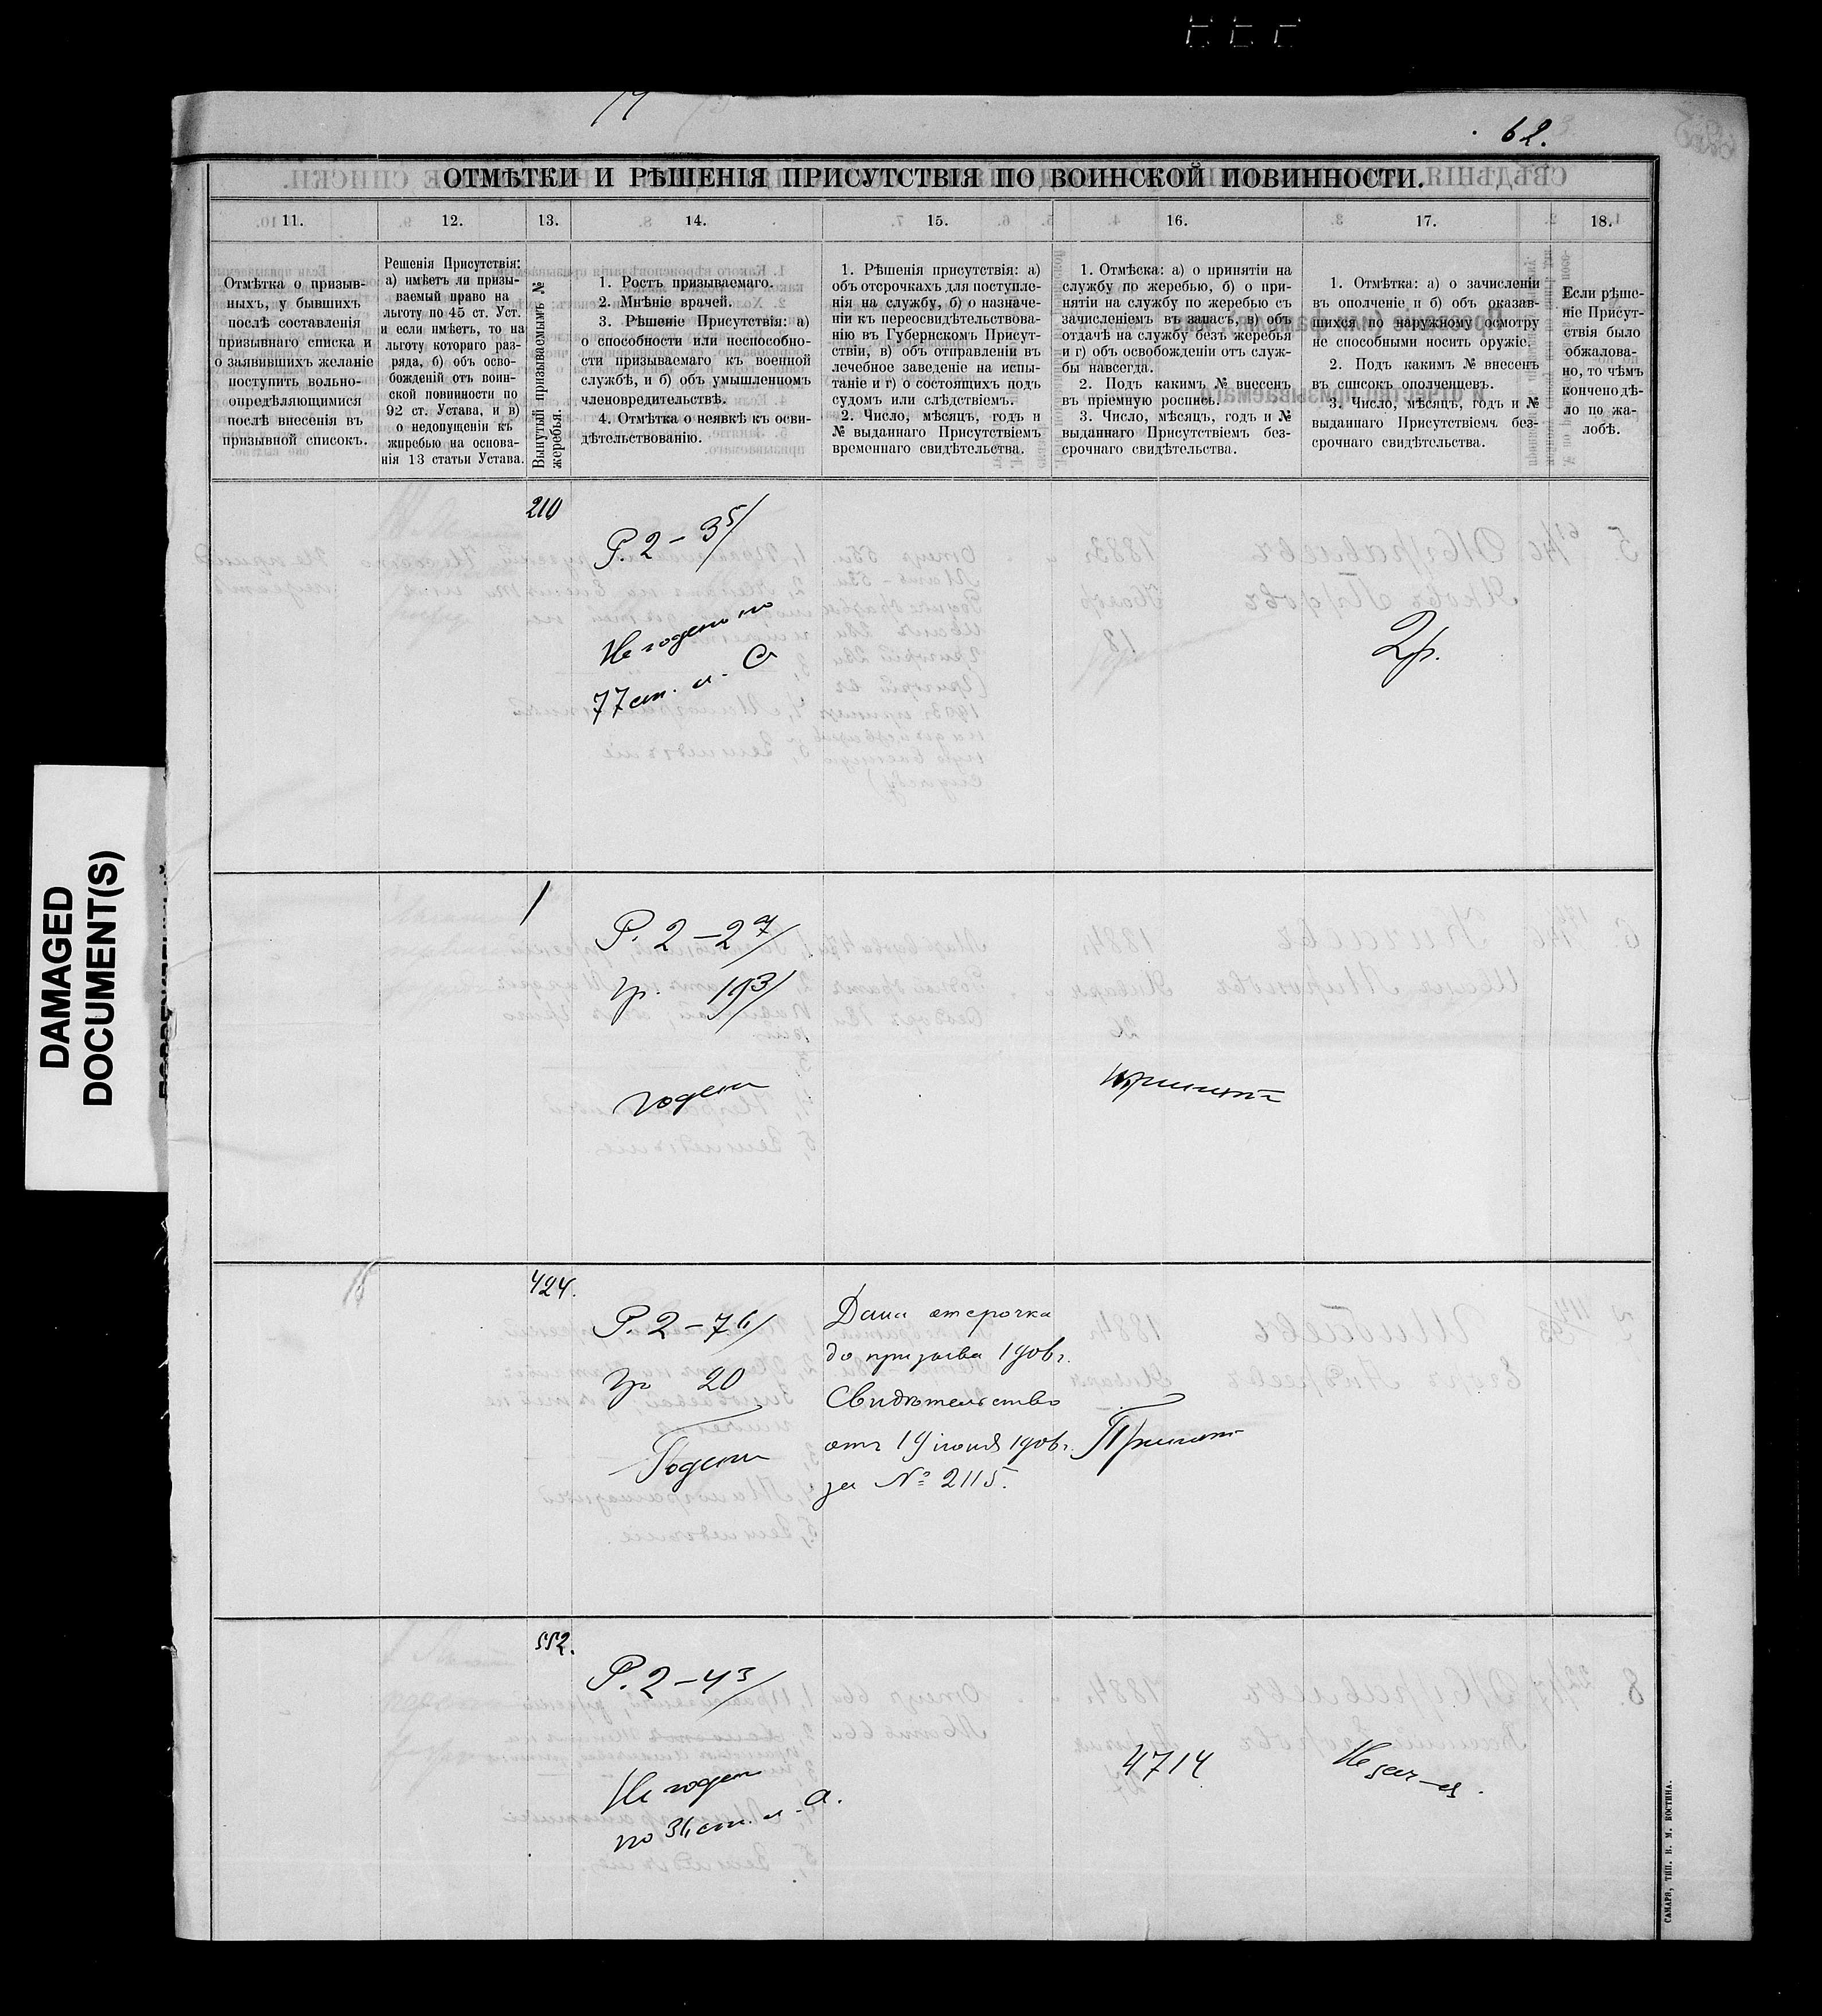 62.
ОТМѢТКИ И РѢШЕНІЯ ПРИСУТСТВІЯ ПО ВОИНСКОЙ ПОВИННОСТИ.
11.
12.
13.
14.
15.
16.
17.
18.
Отмѣтка о призыв-
ныхъ, у бывшихъ
послѣ составленія
призывнаго списка и
о заявившихъ желаніе
поступить вольно-
опредѣляющимися
послѣ внесенія въ
призывной списокъ.
Решенія Присутствія:
а) имѣетъ ли призы-
ваемый право на
льготу по 45 ст. Уст.
и если имѣетъ, то на
льготу котораго раз-
ряда, б) объ осво-
божденій отъ воин-
ской повинности по
92 ст. Устава, и в)
о недопущеніи къ
жиребью на основа-
нія 13 статьи Устава.
Вынутый призываемымъ №
жеребья.
1. Ростъ призываемаго.
2. Мнѣніе врачей.
3. Рѣшеніе Присутствія: а)
о способности или неспособно-
сти призываемаго къ военной
службѣ, и б) объ умышленномъ
членовредительствѣ.
4. Отмѣтка о неявкѣ къ осви-
дѣтельствованію.
1. Рѣшенія присутствія: а)
объ отсрочкахъ для поступле-
нія на службу, б) о назначе-
ніи къ переосвидѣтельствова-
нію въ Губернскомъ Присут-
ствіи, в) объ отправленіи въ
лечебное заведеніе на испы-
таніе и г) о состоящихъ подъ
судомъ или слѣдствіемъ.
2. Число, мѣсяцъ, годъ и
№ выданнаго Присутствіемъ
временнаго свидѣтельства.
1. Отмѣска: а) о принятіи на
службу по жеребью, б) о при-
нятіи на службу по жеребью съ
зачисленіемъ въ запасъ, в) объ
отдачѣ на службу безъ жеребья
и г) объ освобожденіи отъ служ-
бы навсегда.
2. Подъ какимъ № внесенъ
въ пріемную роспись.
3. Число, мѣсяцъ, годъ и №
выданнаго Присутствіемъ без-
срочнаго свидѣтельства.
1. Отмѣтка: а) о зачисленіи
въ ополченіе и б) объ оказав-
шихся по наружному осмотру
не способными носить оружіе.
2. Подъ какимъ № внесенъ
въ списокъ ополченцевъ.
3. Число, мѣсяцъ, годъ и №
выданнаго Присутствіемъ без-
срочнаго свидѣтельства.
Если рѣше-
ніе Присут-
ствія было
обжалова-
но, то чѣмъ
кончено дѣ-
ло по жа-
лобѣ.
210
Р. 2 – 3 5/
Не годенъ по
77 ст. л. С
2р.
1
Р. 2 – 2 7/
гр.
годенъ
принятъ
424.
Р. 2 – 7 6/
гр 20
Годенъ
Дана отсрочка
до призыва 1906 г.
Свидѣтельство
отъ 19 іюня 1906 г.
за № 2115.
Принятъ
552.
Р. 2 – 4 3/
Не годенъ
по 36 ст. л. а.
4714
САМАРА, ТИП. Н. М. КОСТИНА.
DAMAGED
DOCUMENT(S)